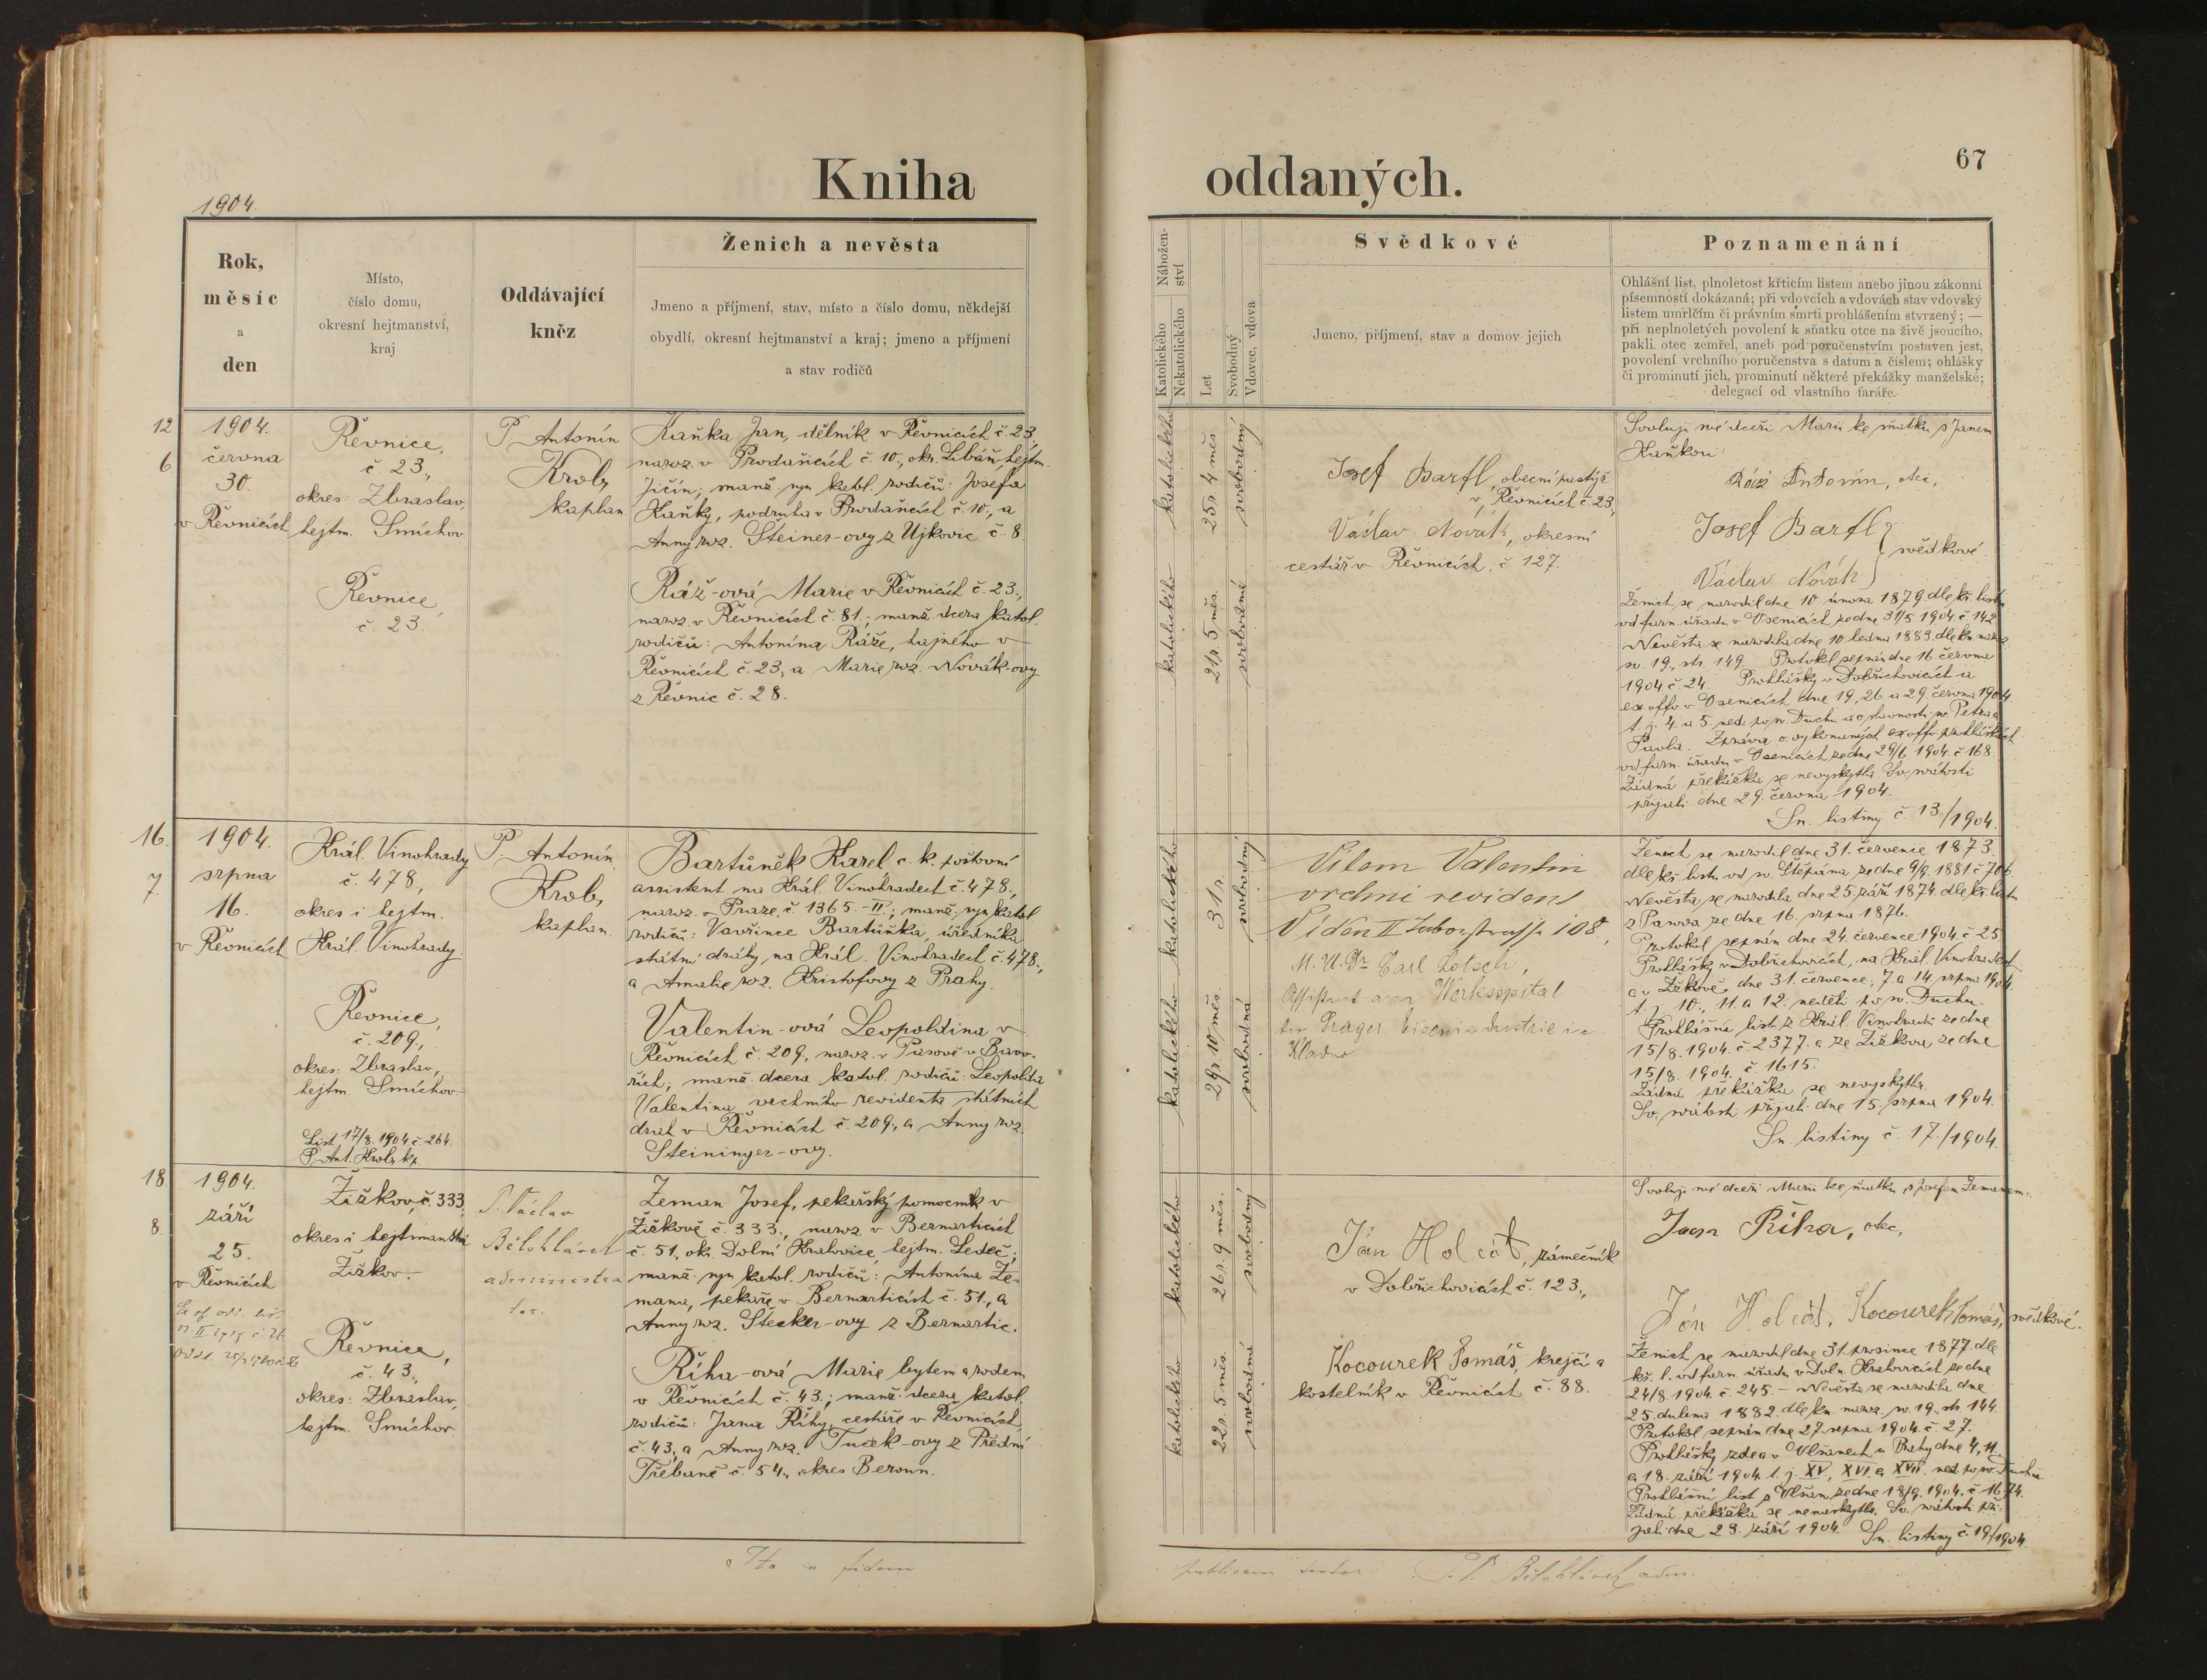 Kniha
oddaných.
67
1904.
Rok,
měsíc
a
den
Místo,
číslo domu,
okresní hejtmanství,
kraj
Oddávající
kněz
Ženich a nevěsta
Jmeno a příjmení, stav, místo a číslo domu, někdejší
obydlí, okresní hejtmanství a kraj; jmeno a příjmení
a stav rodičů
Nábožen-
ství
Katolického
Nekatolického
Let
Svobodný
Vdovec, vdova
Svědkové
Jmeno, příjmení, stav a domov jejich
Poznamenání
Ohlášní list, plnoletost křticím listem anebo jinou zákonní
písemností dokázaná; při vdovcích a vdovách stav vdovský
listem umrlčím či právním smrti prohlášením stvrzený; —
při neplnoletých povolení k sňatku otce na živě jsoucího,
pakli otec zemřel, aneb pod poručenstvím postaven jest,
povolení vrchního poručenstva s datum a číslem; ohlášky
či prominutí jich, prominutí některé překážky manželské;
delegací od vlastního faráře.
12
6
1904.
června
30.
v Řevnicích
Řevnice,
č. 23.,
okres: Zbraslav,
hejtm. Smíchov.
Řevnice,
č. 23.
P. Antonín
Krob,
kaplan
Kaňka Jan, dělník v Řevnicích č. 23.,
naroz. v Prodašicích č. 10., okr. Libáň, hejtm.
Jičín; manž. syn katol. rodičů: Josefa
Kaňky, podruha v Prodašicích č. 10., a
Anny roz. Šteiner-ovy z Ujkovic č. 8.
Ráž-ová Marie v Řevnicích č. 23.,
naroz. v Řevnicích č. 81.; manž. dcera katol.
rodičů: Antonína Ráže, hajného v
Řevnicích č. 23., a Marie roz. Novák-ovy
z Řevnic č. 28.
katolického
25 r. 4 měs.
svobodný
katolického
21 r. 5 měs.
svobodná
Josef Bartl, obecní pastýř
v Řevnicích č. 23.,
Václav Novák, okresní
cestář v Řevnicích, č. 127.
Svoluji mé dceři Marii ke sňatku s Janem
Kaňkou:
Ráž Antonín, otec,
Josef Bartl
svědkové.
Václav Novák
Ženich se narodil dne 10 února 1879 dle kř. listu
od farn. úřadu v Osenicích ze dne 31/5 1904. č. 142.
Nevěsta se narodila dne 10 ledna 1883. dle kn. naroz.
sv. 19., str. 149. Protokol sepsán dne 16. června
1904. č. 24. Prohlášky v Dobřichovicích a
ex offo. v Osenicích dne 19., 26. a 29. června 1904.
t. j. 4. a 5. ned. po sv. Duchu a o slavnosti sv. Petra a
Pavla. Zpráva o vykonaných ex offo prohláškách
od farn. úřadu v Osenicích ze dne 29/6 1904. č. 168.
Žádná překážka se nevyskytla. Sv. svátosti
přijali dne 29. června 1904.
Sn. listiny č. 13./1904.
16.
7.
1904.
srpna
16.
v Řevnicích
Král. Vinohrady
č. 478.,
okres i hejtm.
Král. Vinohrady.
Řevnice,
č. 209.,
okres: Zbraslav,
hejtm. Smíchov.
List 17/8. 1904. č. 264.
P. Ant. Krob, kp.
P. Antonín
Krob,
kaplan.
Bartůněk Karel c. k. poštovní
assistent na Král. Vinohradech č. 478.,
naroz. v Praze, č. 1365.-II.; manž. syn katol.
rodičů: Vavřince Bartůňka, úředníka
státní dráhy na Král. Vinohradech č. 478.,
a Amalie roz. Kristofovy z Prahy.
Valentin-ová Leopoldina v
Řevnicích č. 209., naroz. v Pasově v Bavo-
řích; manž. dcera katol. rodičů: Leopolda
Valentina vrchního revidenta státních
drah v Řevnicích č. 209., a Anny roz.
Steininger-ovy.
katolického
31 r.
svobodný
katolického
29 r. 10 měs.
svobodná
Vilem Valentin
vrchni revident
Viden II 108,
M. U. Dr. Carl
Werksspital
Prager
Kladno
Ženich se narodil dne 31. července 1873.
dle kř. listu od sv. Štěpána ze dne 9/9. 1881. č. 706.
Nevěsta se narodila dne 25 září 1874. dle kř. listu
z Pasova ze dne 16. srpna 1876.
Protokol sepsán dne 24. července 1904. č. 25.
Prohlášky v Dobřichovicích, na Král. Vinohradech
a v Žižkově dne 31. července, 7. a 14. srpna 1904.
t. j. 10., 11. a 12. neděli po sv. Duchu.
Prohlášní list z Král. Vinohradů ze dne
15/8. 1904. č. 2377. a ze Žižkova ze dne
15/8. 1904. č. 1615.
Žádná překážka se nevyskytla.
Sv. svátosti přijali dne 15. srpna 1904.
Sn. listiny č. 17./1904.
18
8.
1904.
září
25.
v Řevnicích
Žižkov, č. 333.,
okres i hejtmanství
Žižkov.
Řevnice,
č. 43.,
okres: Zbraslav,
hejtm. Smíchov
P. Václav
Bělohlávek
administra
tor.
Zeman Josef, pekařský pomocník v
Žižkově č. 333., naroz. v Bernarticích
č. 51., okr. Dolní Kralovice, hejtm. Ledeč;
manž. syn katol. rodičů: Antonína Ze-
mana, pekaře v Bernarticích č. 51., a
Anny roz. Štecker-ovy z Bernartic.
Říha-ová Marie bytem a rodem
v Řevnicích č. 43.; manž. dcera katol.
rodičů: Jana Říhy, cestáře v Řevnicích
č. 43., a Anny roz. Tuček-ovy z Přední
Třebaně č. 54., okres Beroun.
katolického
26 r. 9 měs.
svobodný
katolického
22 r. 5 měs.
svobodná
Jan Holcát, zámečník
v Dobřichovicích č. 123.,
Kocourek Tomáš, krejčí a
kostelník v Řevnicích č. 88.
Svoluji mé dceři Marii ke sňatku s Josefem Zemanem:
Jan Říha, otec,
Ján Holcát, Kocourek Tomáš, svědkové.
Ženich se narodil dne 31. prosince 1877. dle
kř. l. od farn. úřadu v Doln. Kralovicích ze dne
24/8 1904. č. 245. – Nevěsta se narodila dne
25. dubna 1882. dle kn. naroz. sv. 19., str. 144.
Protokol sepsán dne 27. srpna 1904. č. 27.
Prohlášky zde a v Olšanech u Prahy dne 4., 11.
a 18. září 1904. t. j. XV., XVI. a XVII. ned. po sv. Duchu
Prohlášní list z Olšan ze dne 18/9. 1904. č. 1674.
Žádná překážka se nenaskytla. Sv. svátosti při-
jali dne 23. září 1904. Sn. listiny č. 19/1904.
Ita in fidem
publicam testor: P. V. Bělohlávek adm.